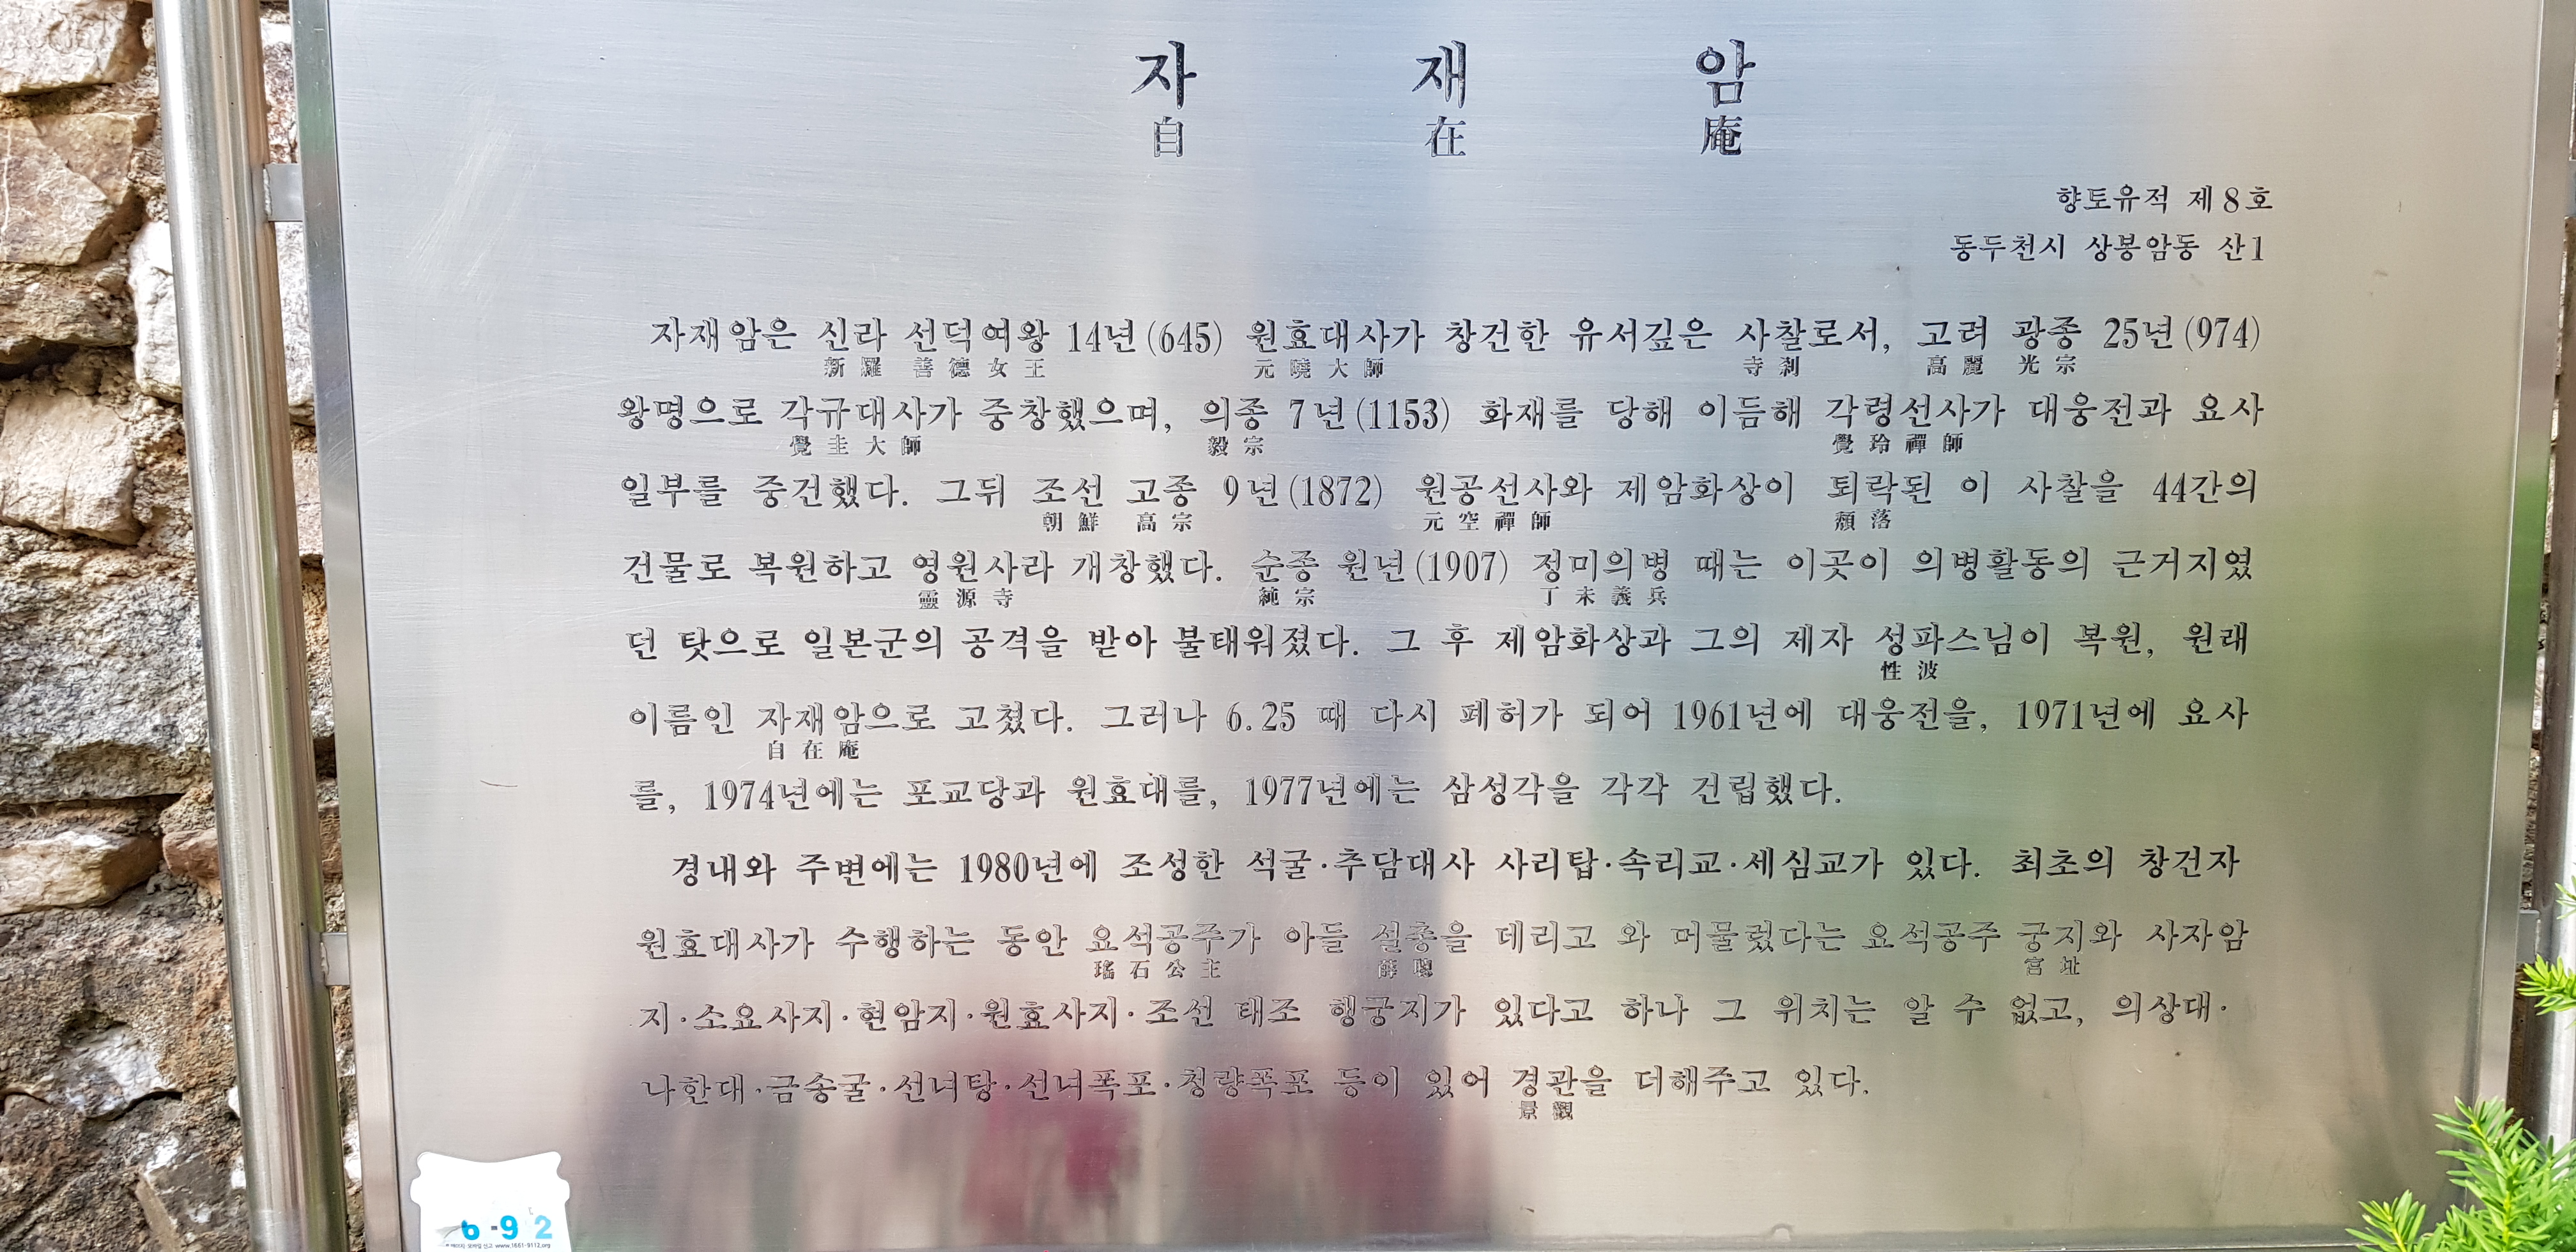 자 재 암
自 在 庵
향토유적 제8호
동두천시 상봉암동 산1
자재암은 신라 선덕여왕 14년(645) 원효대사가 창건한 유서깊은 사찰로서, 고려 광종 25년(974)
新羅 善德女王 元曉大師 寺刹 高麗 光宗
왕명으로 각규대사가 중창했으며, 의종 7년(1153) 화재를 당해 이듬해 각령선사가 대웅전과 요사
覺圭大師 毅宗 覺玲禪師
일부를 중건했다. 그뒤 조선 고종 9년(1872) 원공선사와 제암화상이 퇴락된 이 사찰을 44간의
朝鮮 高宗 元空禪師 頹落
건물로 복원하고 영원사라 개창했다. 순종 원년(1907) 정미의병 때는 이곳이 의병활동의 근거지였
靈源寺 純宗 丁未義兵
던 탓으로 일본군의 공격을 받아 불태워졌다. 그 후 제암화상과 그의 제자 성파스님이 복원, 원래
性波
이름인 자재암으로 고쳤다. 그러나 6.25 때 다시 폐허가 되어 1961년에 대웅전을, 1971년에 요사
自在庵
를, 1974년에는 포교당과 원효대를, 1977년에는 삼성각을 각각 건립했다.
경내와 주변에는 1980년에 조성한 석굴·추담대사 사리탑·속리교·세심교가 있다. 최초의 창건자
원효대사가 수행하는 동안 요석공주가 아들 설총을 데리고 와 머물렀다는 요석공주 궁지와 사자암
瑤石公主 薛聰 宮址
지·소요사지·현암지·원효사지·조선 태조 행궁지가 있다고 하나 그 위치는 알 수 없고, 의상대·
나한대·금송굴·선녀탕·선녀폭포·청량폭포 등이 있어 경관을 더해주고 있다.
景觀
6-9 2
www.1661-9112.org